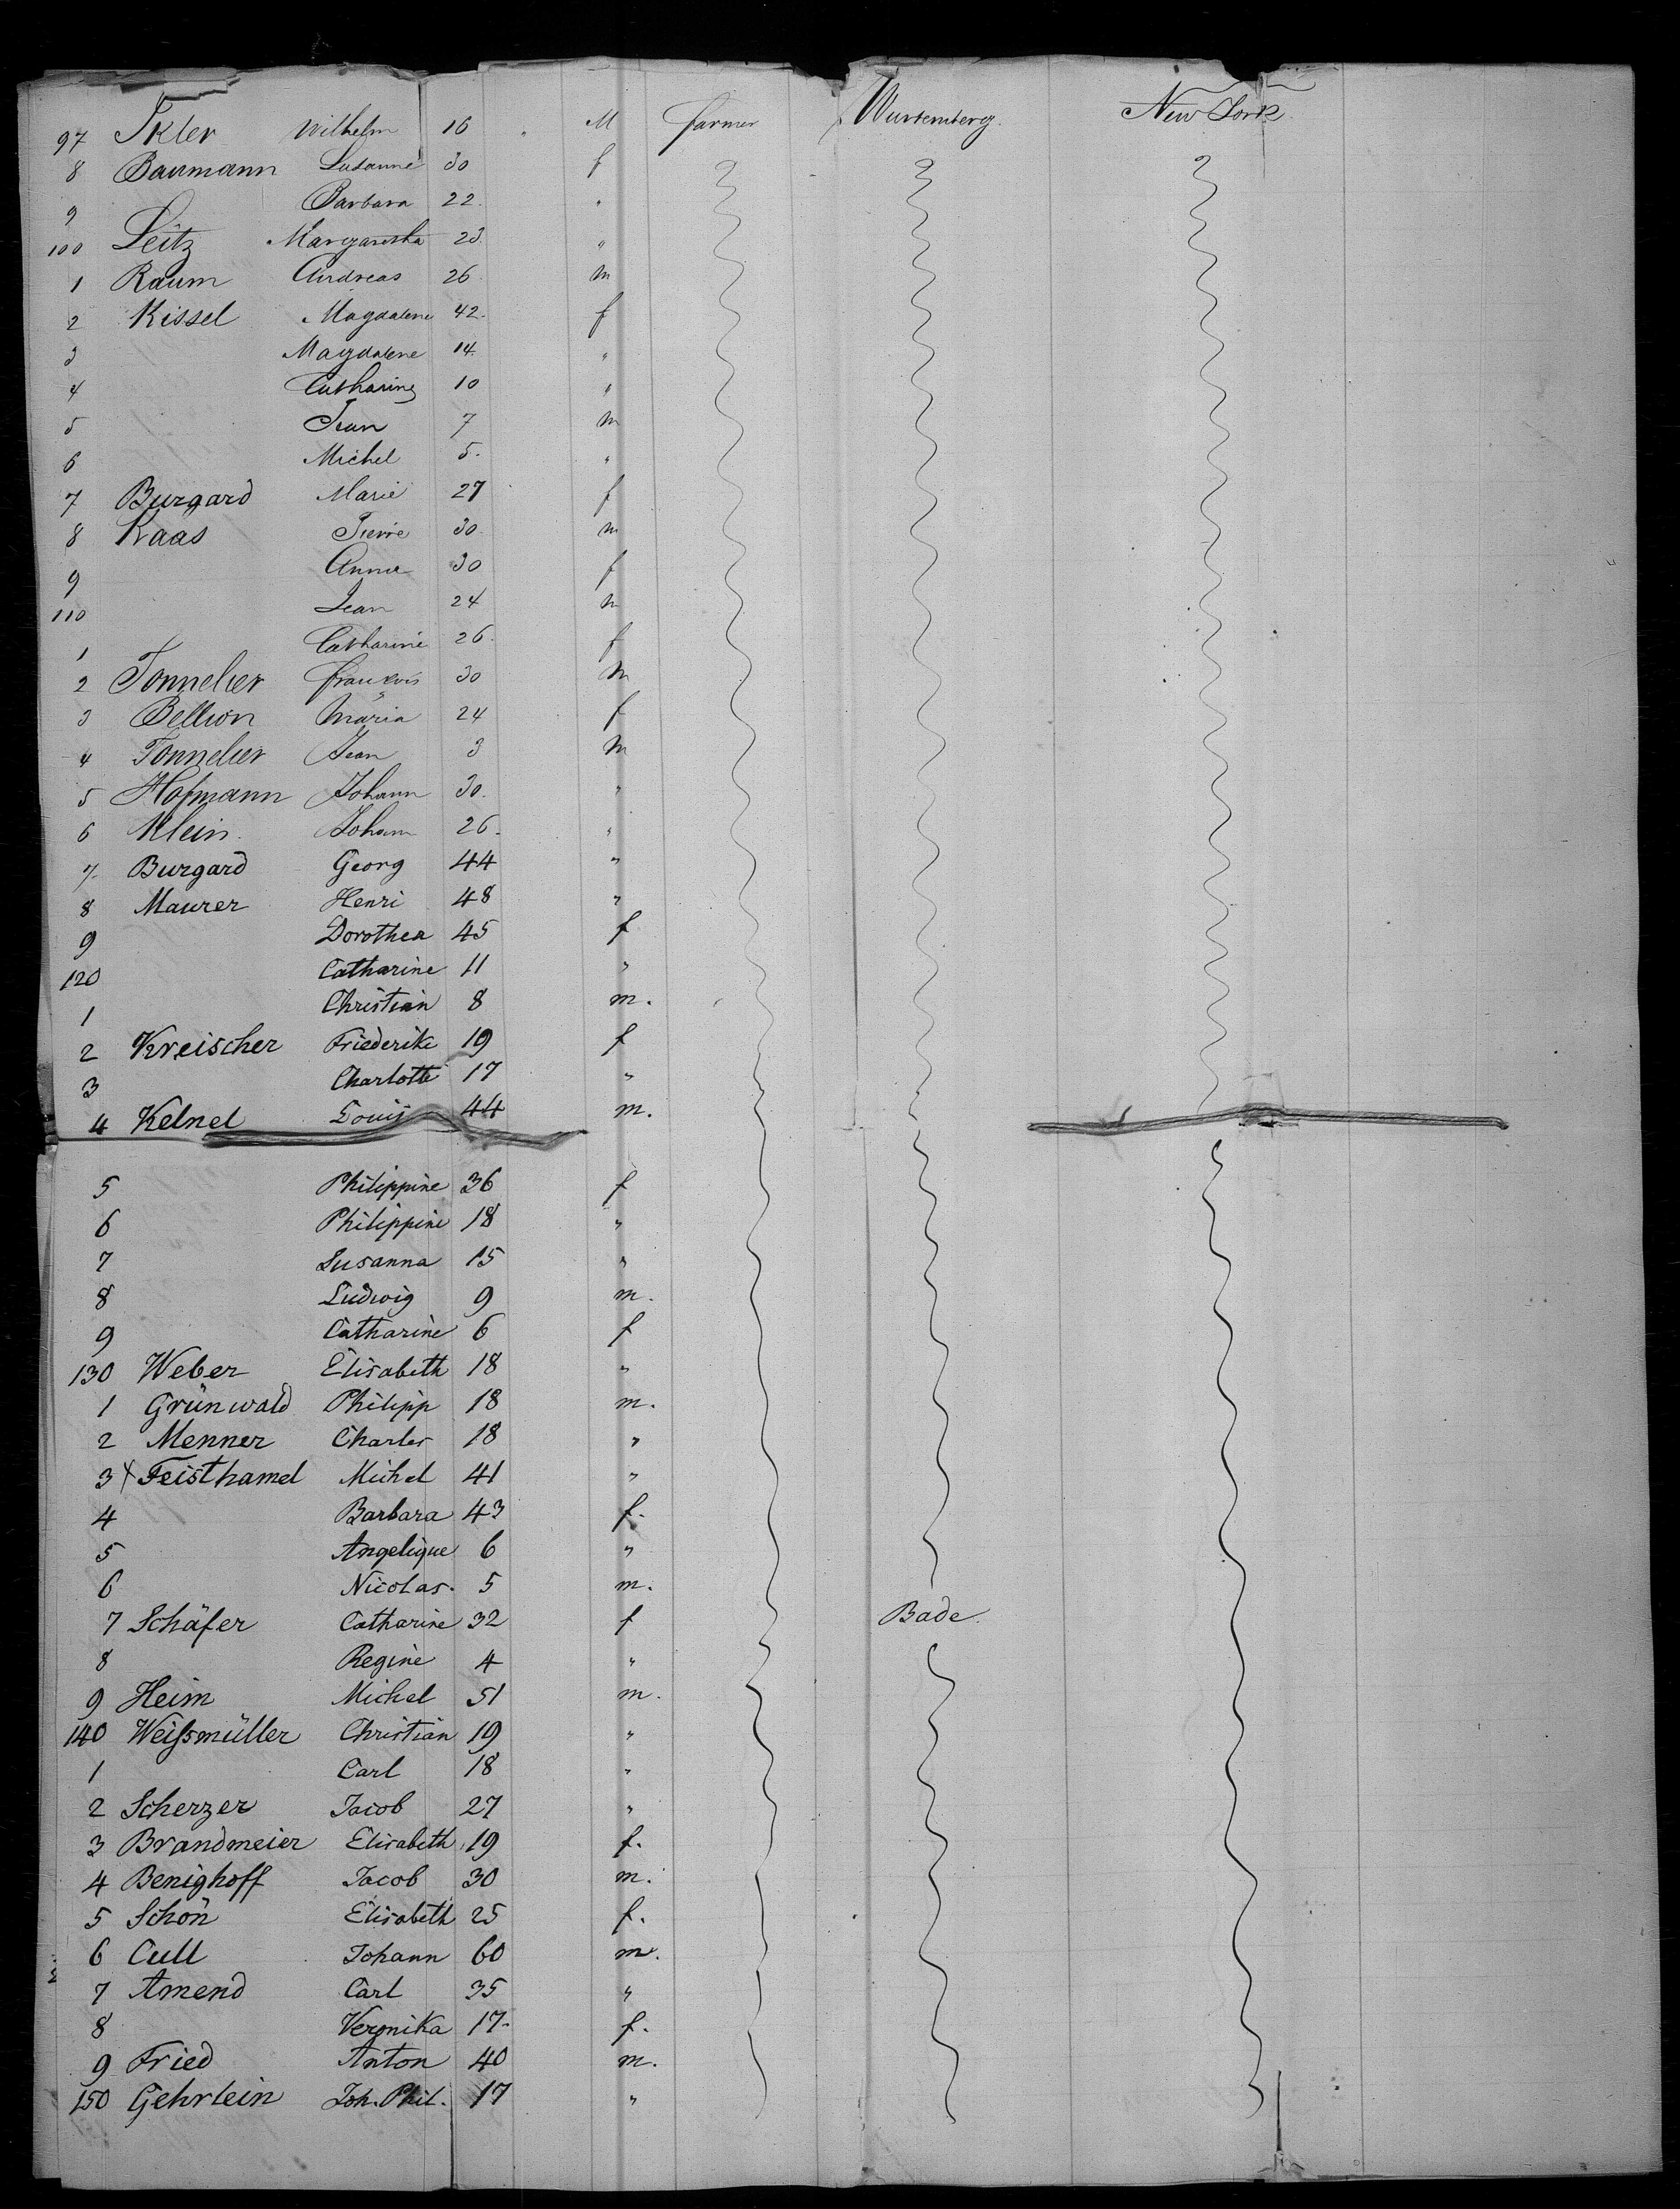 97 Ikler Wilhelm 16 " M farmer Wurtemberg. New York
8 Baumann Susanne 30 f
9 Barbara 22. "
100 Leitz Margaretha 23. "
1 Raum Andreas 26 m
2 Kissel Magdalene 42. f
3 Magdalene 14. "
4 Catharine 10 "
5 Jean 7 m
6 Michel 5. "
7 Burgard Marie 27 f
8 Kaas Pierre 30 m
9 Anna 30 f
110 Jean 24 m
1 Catharine 26. f
2 Tonnelier François 30 m
3 Bellion Maria 24 f
4 Tonnelier Jean 3 m
5 Hofmann Johann 30. "
6 Klein. Johann 26. "
7. Burgard Georg 44 "
8 Maurer Henri 48 "
9 Dorothea 45 f
120 Catharine 11 "
1 Christian 8 m.
2 Kreischer Friederike 19 f
3 Charlotte 17 "
4 Kelnel Louis 44 m.
5 Philippine 36 f
6 Philippine 18 "
7 Susanna 15 "
8 Ludwig 9 m.
9 Catharine 6 f
130 Weber Elisabeth 18 "
1 Grünwald Philipp 18 m.
2 Menner Charles 18 "
3 x Feisthamel Michel 41 "
4 Barbara 43 f.
5 Angelique 6 "
6 Nicolas. 5 m.
7 Schäfer Catharine 32 f Bade.
8 Regine 4 "
9 Heim Michel 51 m.
140 Weißmüller Christian 19 "
1 Carl 18 "
2 Scherzer Jacob 27 "
3 Brandmeier Elisabeth 19 f.
4 Benighoff Jacob 30 m.
5 Schön Elisabeth 25 f.
6 Cull Johann 60 m.
7 Amend Carl 35 "
8 Veronika 17. f.
9 Fried Anton 40 m.
150 Gehrlein Joh. Phil. 17 "